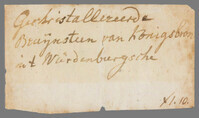 Gechristalliseerde
Bruijnsteen van Königsbron
in 't Würdenburgsche
XI. 10.